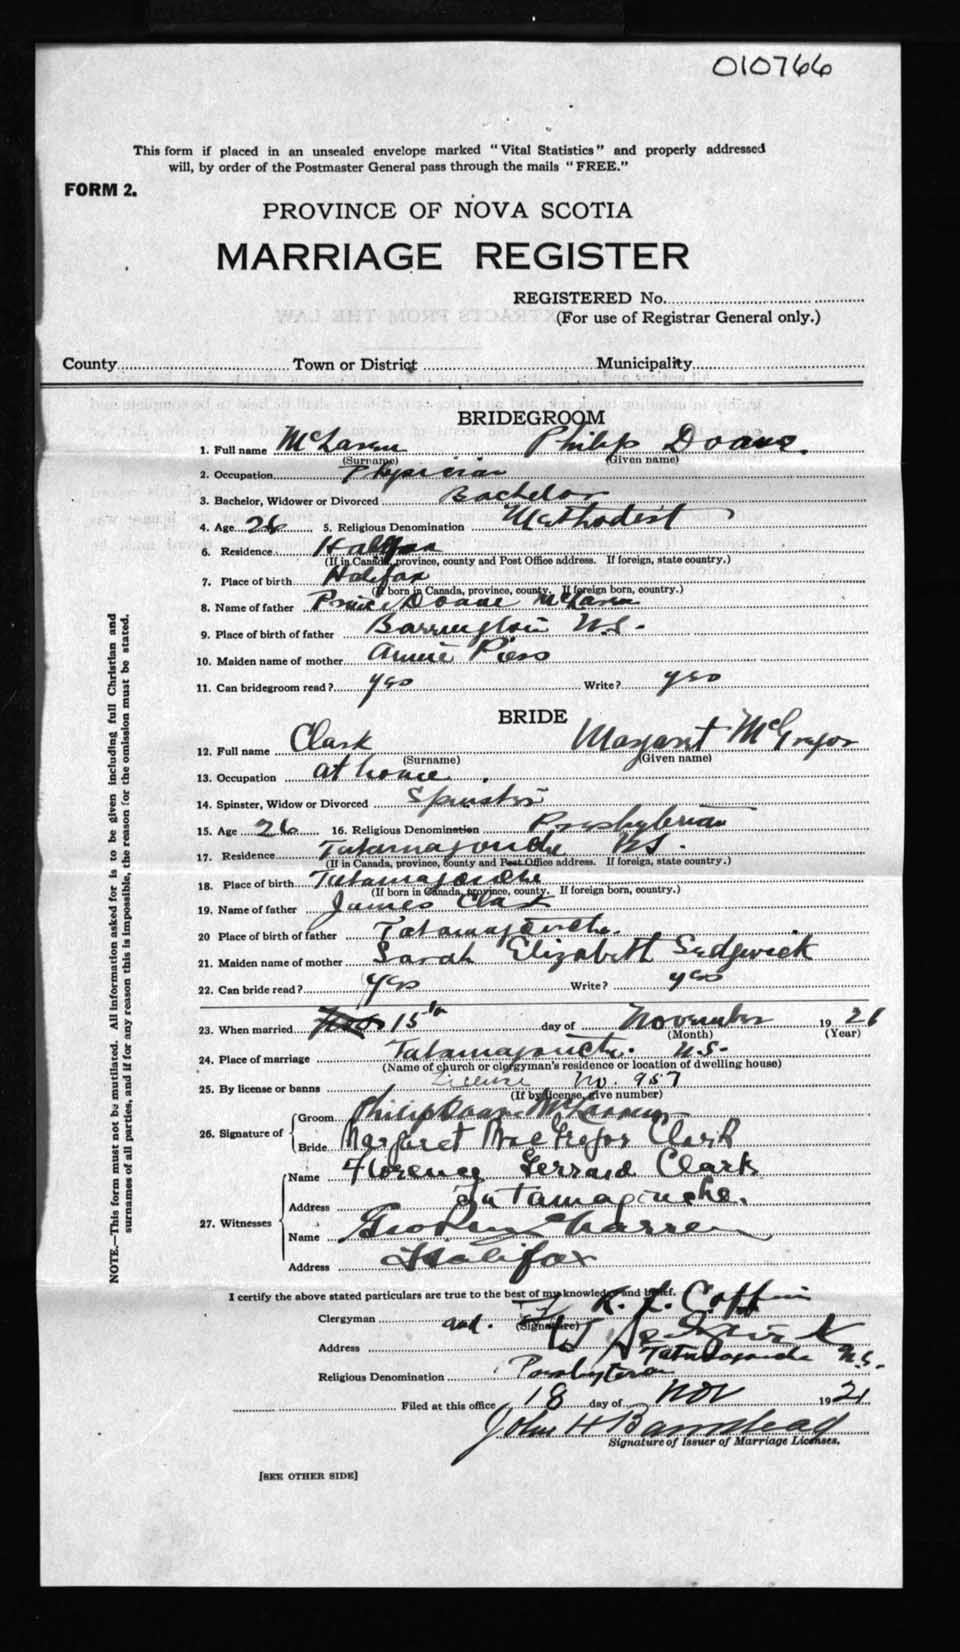 010766
This form if placed in an unsealed envelope marked "Vital Statistics" and properly addressed
will, by order of the Postmaster General pass through the mails "FREE."
FORM 2.
PROVINCE OF NOVA SCOTIA
MARRIAGE REGISTER
REGISTERED No.
(For use of Registrar General only.)
County Town or District Municipality
BRIDEGROOM
1. Full name McLaren Philip Doane.
(Surname) (Given name)
2. Occupation Physician
3. Bachelor, Widower or Divorced Bachelor
4. Age 26 5. Religious Denomination Methodist
6. Residence Halifax
(If in Canada, province, county and Post Office address. If foreign, state country.)
7. Place of birth Halifax
(If born in Canada, province, county. If foreign born, country.)
8. Name of father Doane McLaren
9. Place of birth of father Barrington N.S.
10. Maiden name of mother Annie
11. Can bridegroom read? yes Write? yes
BRIDE
12. Full name Clark Margaret McGregor
(Surname) (Given name)
13. Occupation at home
14. Spinster, Widow or Divorced Spinster
15. Age 26 16. Religious Denomination Presbyterian
17. Residence Tatamagouche N.S.
(If in Canada, province, county and Post Office address. If foreign, state country.)
18. Place of birth Tatamagouche
(If born in Canada, province, county. If foreign born, country.)
19. Name of father James Clark
20 Place of birth of father Tatamagouche.
21. Maiden name of mother Sarah Elizabeth Sedgwick
22. Can bride read? yes Write? yes
23. When married 15th day of November 1926
(Month) (Year)
24. Place of marriage Tatamagouche. N.S.
(Name of church or clergyman's residence or location of dwelling house)
25. By license or banns License No. 957
(If by license, give number)
26. Signature of
Groom Philip Doane McLarren
Bride Margaret MacGregor Clark
27. Witnesses
Name Florence Gerrard Clark
Address Tatamagouche.
Name
Address Halifax
I certify the above stated particulars are true to the best of my knowledge and belief.
Clergyman and. R. L. Coffin
(Signature)
Address Tatamagouche N.S.
Religious Denomination Presbyterian
Filed at this office 18 day of Nov 1921
John H
Signature of Issuer of Marriage Licenses.
[SEE OTHER SIDE]
NOTE.—This form must not be mutilated. All information asked for is to be given including full Christian and
surnames of all parties, and if for any reason this is impossible, the reason for the omission must be stated.